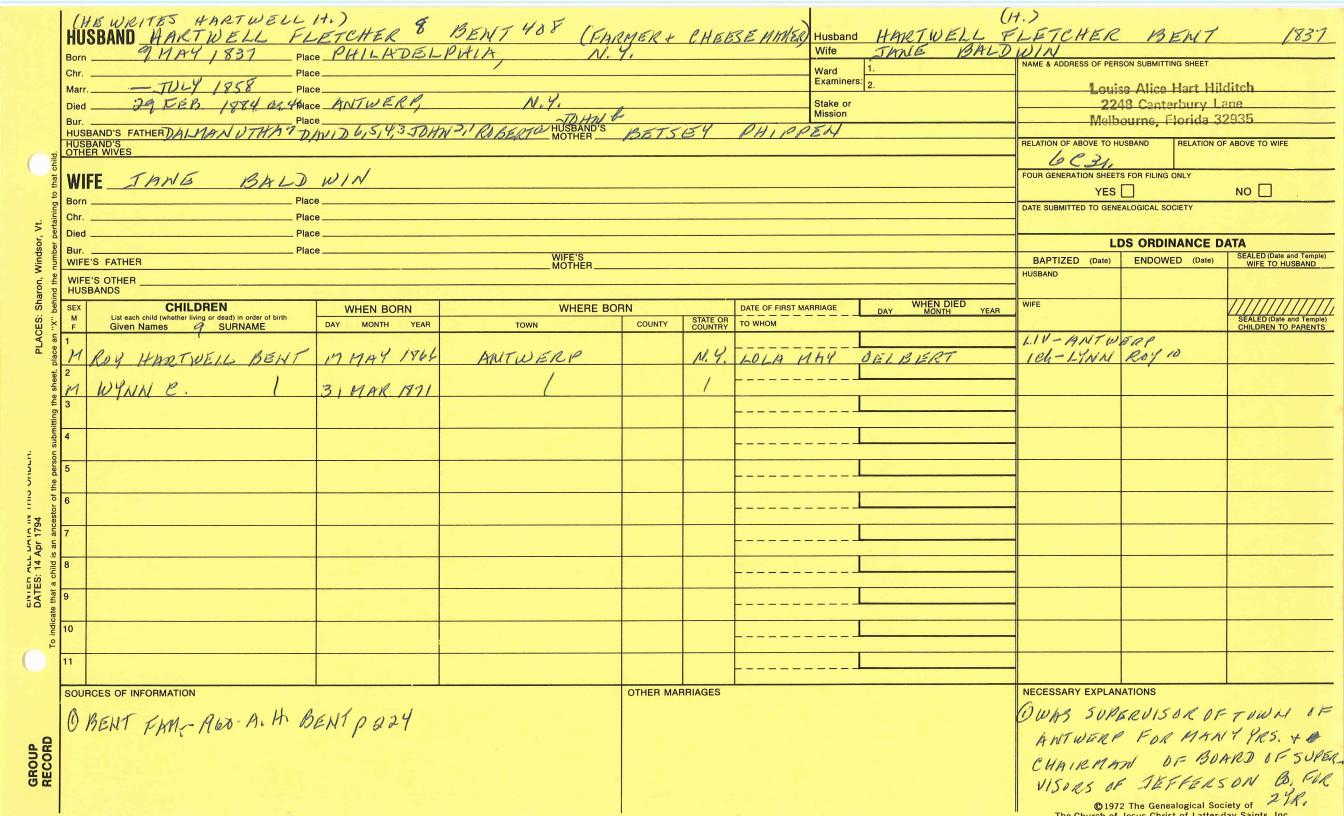 (HE WRITES HARTWELL H.)
HUSBAND HARTWELL FLETCHER 8 BENT 408 (FARMER + CHEESE MAKER)
Born 9 MAY 1837 Place PHILADELPHIA, N.Y.
Chr. Place
Marr. — JULY 1858 Place
Died 29 FEB 1884 Place ANTWERP, N.Y.
Bur. Place
HUSBAND'S FATHER DALMANUTHA 7 DAVID 6,5,4,3 JOHN 2,1 ROBERT JOHN HUSBAND'S MOTHER BETSEY PHIPPEN
HUSBAND'S OTHER WIVES
WIFE JANE BALDWIN
Born Place
Chr. Place
Died Place
Bur. Place
WIFE'S FATHER WIFE'S MOTHER
WIFE'S OTHER HUSBANDS
(H.)
Husband HARTWELL FLETCHER BENT 1837
Wife JANE BALDWIN
Ward Examiners: 1.
2.
Stake or Mission
NAME & ADDRESS OF PERSON SUBMITTING SHEET
Louise Alice Hart Hilditch
2248 Canterbury Lane
Melbourne, Florida 32935
RELATION OF ABOVE TO HUSBAND RELATION OF ABOVE TO WIFE
6C3r.
FOUR GENERATION SHEETS FOR FILING ONLY
YES NO
DATE SUBMITTED TO GENEALOGICAL SOCIETY
LDS ORDINANCE DATA
BAPTIZED (Date) ENDOWED (Date) SEALED (Date and Temple) WIFE TO HUSBAND
HUSBAND
WIFE
SEALED (Date and Temple) CHILDREN TO PARENTS
SEX M F CHILDREN WHEN BORN WHERE BORN DATE OF FIRST MARRIAGE WHEN DIED
List each child (whether living or dead) in order of birth
Given Names 9 SURNAME DAY MONTH YEAR TOWN COUNTY STATE OR COUNTRY TO WHOM DAY MONTH YEAR
1 LIV-ANTWERP
M ROY HARTWELL BENT 17 MAY 1866 ANTWERP N.Y. LOLA MAY OELBERT 1Ch-LYNN ROY 10
2
M WYNN C. 31 MAR 1871
3
4
5
6
7
8
9
10
11
SOURCES OF INFORMATION
① BENT FAM,- 1900- A. H. BENT p 224
OTHER MARRIAGES
NECESSARY EXPLANATIONS
① WAS SUPERVISOR OF TOWN OF
ANTWERP FOR MANY YRS. +
CHAIRMAN OF BOARD OF SUPER-
VISORS OF JEFFERSON CO. FOR
2 YR.
©1972 The Genealogical Society of
The Church of Jesus Christ of Latter-day Saints, Inc.
PLACES: Sharon, Windsor, Vt.
ENTER ALL DATA IN THIS ORDER:
DATES: 14 Apr 1794
To indicate that a child is an ancestor of the person submitting the sheet, place an "X" behind the number pertaining to that child.
GROUP
RECORD